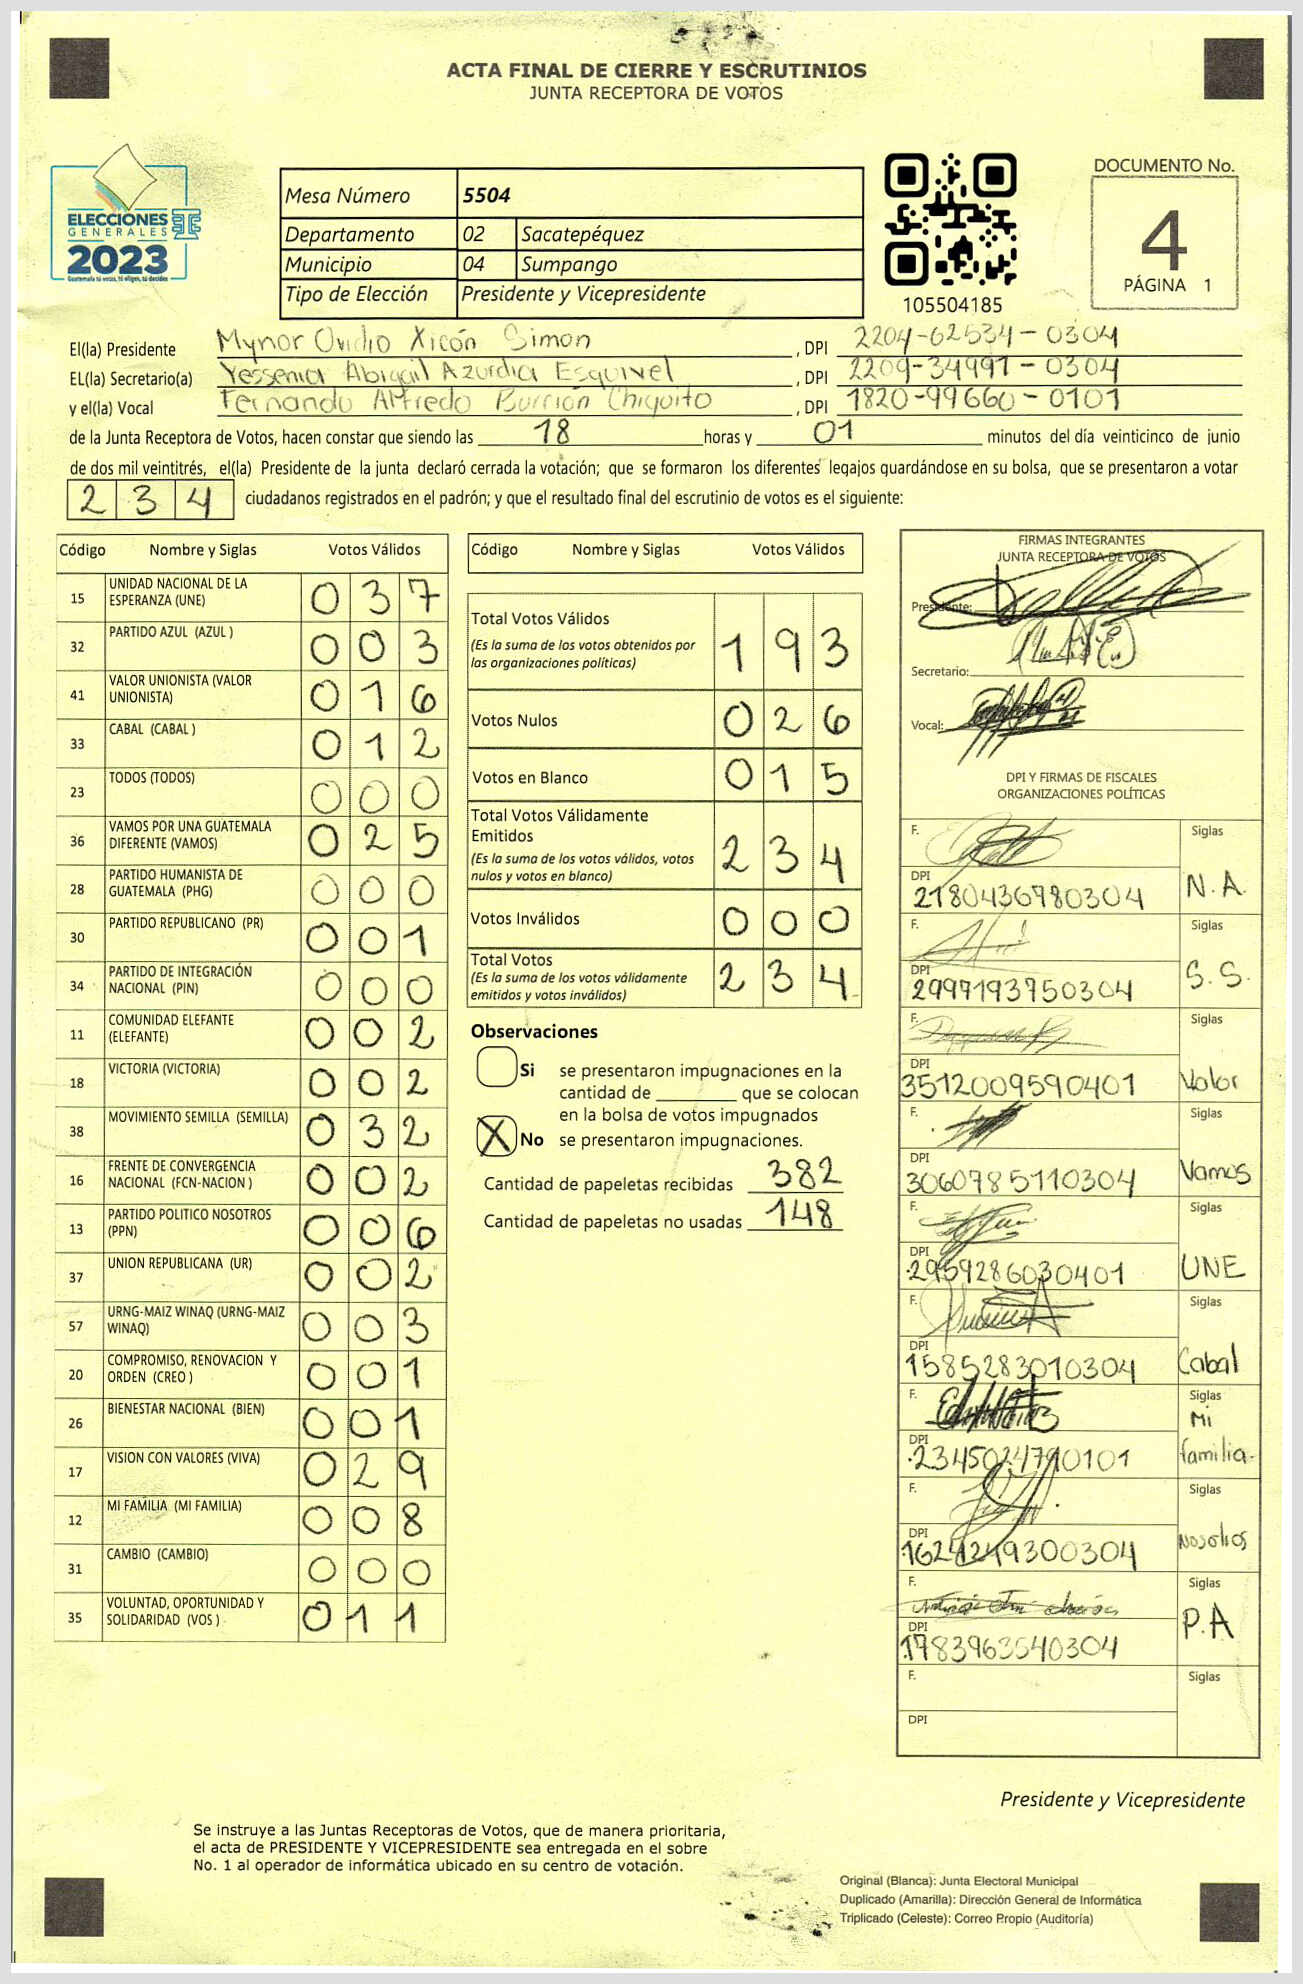 ACTA FINAL DE CIERRE Y ESCRUTINIOS
JUNTA RECEPTORA DE VOTOS
ELECCIONES
GENERALES
2023
Guatemala tú votas, tú eliges, tú decides
Mesa Número 5504
Departamento 02 Sacatepéquez
Municipio 04 Sumpango
Tipo de Elección Presidente y Vicepresidente
105504185
DOCUMENTO No.
4
PÁGINA 1
El(la) Presidente Mynor Ovidio Xicón Simon, DPI 2204-62534-0304
EL(la) Secretario(a) Yessenia Abigail Azurdia Esquivel, DPI 2209-34997-0304
y el(la) Vocal Fernando Alfredo Burrion Chiquito, DPI 1820-99660-0101
de la Junta Receptora de Votos, hacen constar que siendo las 18 horas y 01 minutos del día veinticinco de junio
de dos mil veintitrés, el(la) Presidente de la junta declaró cerrada la votación; que se formaron los diferentes legajos guardándose en su bolsa, que se presentaron a votar
234 ciudadanos registrados en el padrón; y que el resultado final del escrutinio de votos es el siguiente:
Código Nombre y Siglas Votos Válidos
15 UNIDAD NACIONAL DE LA ESPERANZA (UNE) 037
32 PARTIDO AZUL (AZUL ) 003
41 VALOR UNIONISTA (VALOR UNIONISTA) 016
33 CABAL (CABAL ) 012
23 TODOS (TODOS) 000
36 VAMOS POR UNA GUATEMALA DIFERENTE (VAMOS) 025
28 PARTIDO HUMANISTA DE GUATEMALA (PHG) 000
30 PARTIDO REPUBLICANO (PR) 001
34 PARTIDO DE INTEGRACIÓN NACIONAL (PIN) 000
11 COMUNIDAD ELEFANTE (ELEFANTE) 002
18 VICTORIA (VICTORIA) 002
38 MOVIMIENTO SEMILLA (SEMILLA) 032
16 FRENTE DE CONVERGENCIA NACIONAL (FCN-NACION ) 002
13 PARTIDO POLITICO NOSOTROS (PPN) 006
37 UNION REPUBLICANA (UR) 002
57 URNG-MAIZ WINAQ (URNG-MAIZ WINAQ) 003
20 COMPROMISO, RENOVACION Y ORDEN (CREO ) 001
26 BIENESTAR NACIONAL (BIEN) 001
17 VISION CON VALORES (VIVA) 029
12 MI FAMILIA (MI FAMILIA) 008
31 CAMBIO (CAMBIO) 000
35 VOLUNTAD, OPORTUNIDAD Y SOLIDARIDAD (VOS ) 011
Código Nombre y Siglas Votos Válidos
Total Votos Válidos 193
(Es la suma de los votos obtenidos por las organizaciones políticas)
Votos Nulos 026
Votos en Blanco 015
Total Votos Válidamente Emitidos 234
(Es la suma de los votos válidos, votos nulos y votos en blanco)
Votos Inválidos 000
Total Votos 234
(Es la suma de los votos válidamente emitidos y votos inválidos)
Observaciones
Si se presentaron impugnaciones en la
cantidad de ________ que se colocan
en la bolsa de votos impugnados
X No se presentaron impugnaciones.
Cantidad de papeletas recibidas 382
Cantidad de papeletas no usadas 148
FIRMAS INTEGRANTES
JUNTA RECEPTORA DE VOTOS
Presidente:
Secretario:
Vocal:
DPI Y FIRMAS DE FISCALES
ORGANIZACIONES POLÍTICAS
F. Siglas
DPI 2180436780304 N.A.
F. Siglas
DPI 2997193750304 S.S.
F. Siglas
DPI 3512009590401 Valor
F. Siglas
DPI 3060785110304 Vamos
F. Siglas
DPI 2959286030401 UNE
F. Siglas
DPI 1585283010304 Cabal
F. Siglas
DPI 2345024790101 Mi familia
F. Siglas
DPI 1624249300304 Nosotros
F. Siglas
DPI 1783963540304 P.A
F. Siglas
DPI
Presidente y Vicepresidente
Se instruye a las Juntas Receptoras de Votos, que de manera prioritaria,
el acta de PRESIDENTE Y VICEPRESIDENTE sea entregada en el sobre
No. 1 al operador de informática ubicado en su centro de votación.
Original (Blanca): Junta Electoral Municipal
Duplicado (Amarilla): Dirección General de Informática
Triplicado (Celeste): Correo Propio (Auditoría)